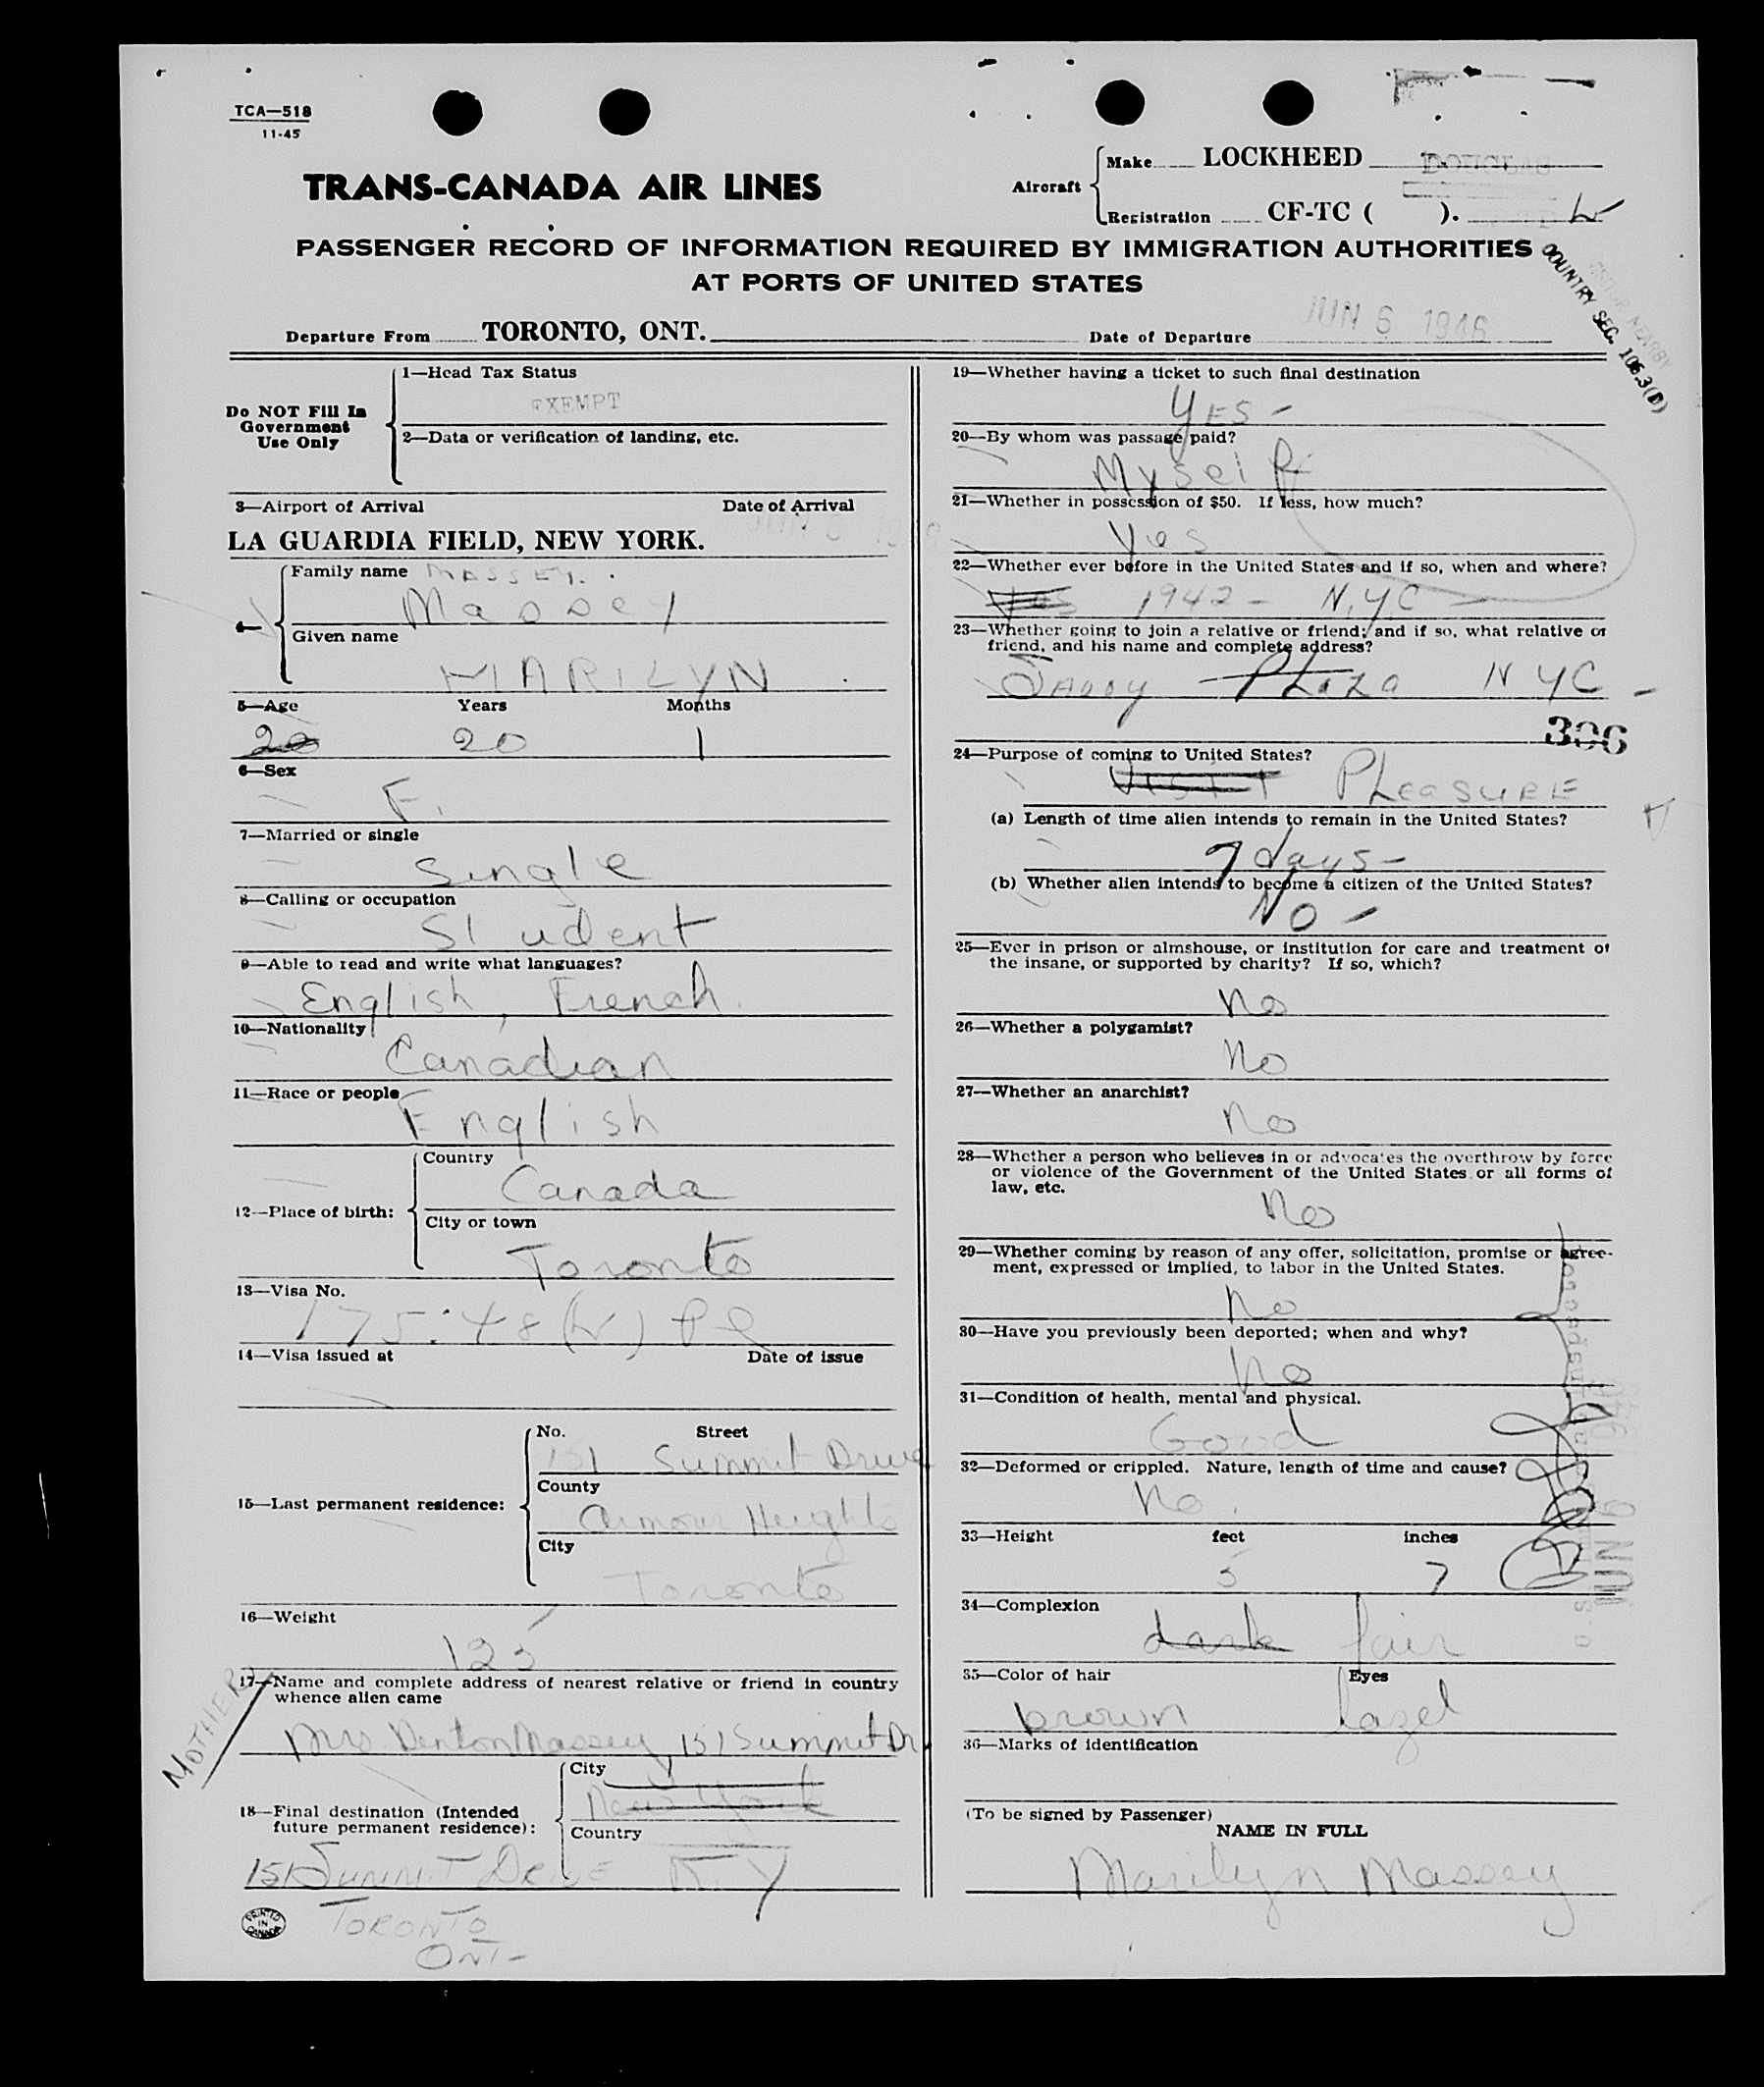 TCA—518
11-45
TRANS-CANADA AIR LINES
Aircraft
Make LOCKHEED
Registration CF-TC ( ).
PASSENGER RECORD OF INFORMATION REQUIRED BY IMMIGRATION AUTHORITIES
AT PORTS OF UNITED STATES
COUNTRY SEC. 106.3(B)
Departure From TORONTO, ONT. Date of Departure JUN 6 1946
Do NOT Fill In
Government
Use Only
1—Head Tax Status
EXEMPT
2—Data or verification of landing, etc.
3—Airport of Arrival Date of Arrival
LA GUARDIA FIELD, NEW YORK.
4—
Family name MASSEY.
Massey
Given name
MARILYN
5—Age Years Months
20 20 1
6—Sex
F.
7—Married or single
Single
8—Calling or occupation
Student
9—Able to read and write what languages?
English, French.
10—Nationality
Canadian
11—Race or people
English
12—Place of birth:
Country
Canada
City or town
Toronto
13—Visa No.
175:48(W)
14—Visa issued at Date of issue
15—Last permanent residence:
No. Street
151 Summit Drive
County
Armour Heights
City
Toronto
16—Weight
125
17—Name and complete address of nearest relative or friend in country
whence alien came
MOTHER
Mrs Denton Massey, 151 Summit Dr.
18—Final destination (Intended
future permanent residence):
City
New York
Country
N.Y
151 SUMMIT DRIVE
TORONTO
ONT-
PRINTED
IN
CANADA
19—Whether having a ticket to such final destination
YES -
20—By whom was passage paid?
Myself
21—Whether in possession of $50. If less, how much?
Yes
22—Whether ever before in the United States and if so, when and where?
Yes 1942 - N.Y.C -
23—Whether going to join a relative or friend; and if so, what relative or
friend, and his name and complete address?
Plaza NYC -
306
24—Purpose of coming to United States?
VISIT PLEASURE
(a) Length of time alien intends to remain in the United States?
7 days -
(b) Whether alien intends to become a citizen of the United States?
NO -
25—Ever in prison or almshouse, or institution for care and treatment of
the insane, or supported by charity? If so, which?
No
26—Whether a polygamist?
No
27—Whether an anarchist?
No
28—Whether a person who believes in or advocates the overthrow by force
or violence of the Government of the United States or all forms of
law, etc.
No
29—Whether coming by reason of any offer, solicitation, promise or agree-
ment, expressed or implied, to labor in the United States.
No
30—Have you previously been deported; when and why?
No
31—Condition of health, mental and physical.
Good
32—Deformed or crippled. Nature, length of time and cause?
No.
33—Height feet inches
5 7
34—Complexion
dark fair
35—Color of hair Eyes
brown hazel
36—Marks of identification
(To be signed by Passenger)
NAME IN FULL
Marilyn Massey